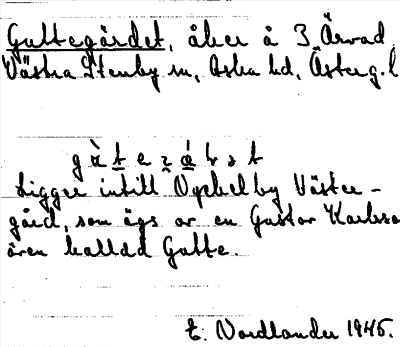 Guttegärdet, åker å 3 Ärvad,
Västra Stenby sn, Aska hd, Österg.l
Ligger intill Opphelby Väster-
gård, som ägs av en Gustav Karlsson
även kallad Gutte.
E. Nordlander 1945.